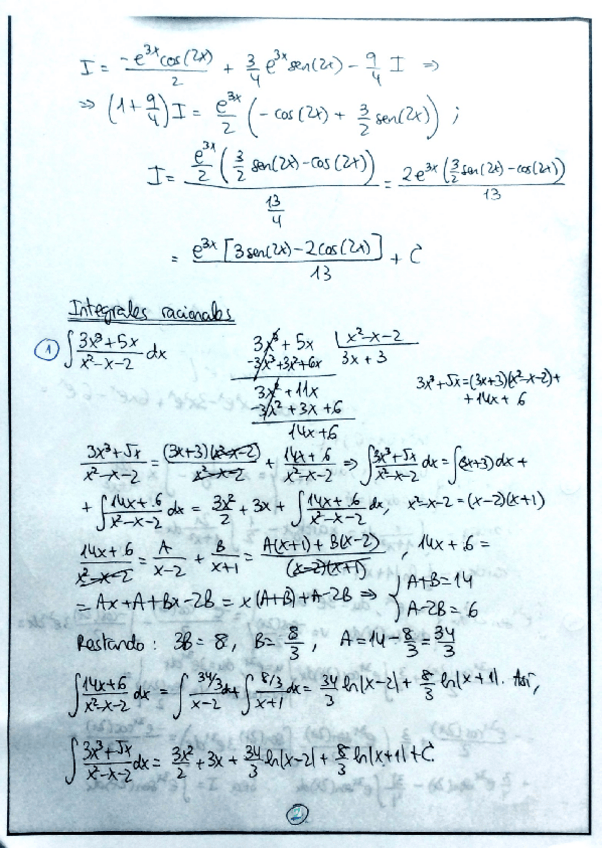 I = -e^{3x}cos(2x)/2 + 3/4 e^{3x} sen(2x) - 9/4 I ⇒
⇒ (1 + 9/4) I = e^{3x}/2 (-cos(2x) + 3/2 sen(2x)) ;
I = [e^{3x}/2 (3/2 sen(2x) - cos(2x))] / (13/4) = 2e^{3x} (3/2 sen(2x) - cos(2x)) / 13
= e^{3x} [3 sen(2x) - 2 cos(2x)] / 13 + C
Integrales racionales
① ∫ (3x³+5x)/(x²-x-2) dx
3x³ + 5x | x²-x-2
-3x³+3x²+6x 3x + 3
3x² + 11x
-3x² + 3x + 6
14x + 6
3x³+5x = (3x+3)(x²-x-2) +
+ 14x + 6
(3x³+5x)/(x²-x-2) = (3x+3)(x²-x-2)/(x²-x-2) + (14x+6)/(x²-x-2) ⇒ ∫ (3x³+5x)/(x²-x-2) dx = ∫(3x+3)dx +
+ ∫ (14x+6)/(x²-x-2) dx = 3x²/2 + 3x + ∫ (14x+6)/(x²-x-2) dx, x²-x-2 = (x-2)(x+1)
(14x+6)/(x²-x-2) = A/(x-2) + B/(x+1) = (A(x+1) + B(x-2))/((x-2)(x+1)) , 14x + 6 =
= Ax + A + Bx - 2B = x(A+B) + A - 2B ⇒ { A+B = 14
A-2B = 6
Restando: 3B = 8, B = 8/3 , A = 14 - 8/3 = 34/3
∫ (14x+6)/(x²-x-2) dx = ∫ (34/3)/(x-2) dx + ∫ (8/3)/(x+1) dx = 34/3 ln|x-2| + 8/3 ln|x+1|. Así,
∫ (3x³+5x)/(x²-x-2) dx = 3x²/2 + 3x + 34/3 ln|x-2| + 8/3 ln|x+1| + C.
2